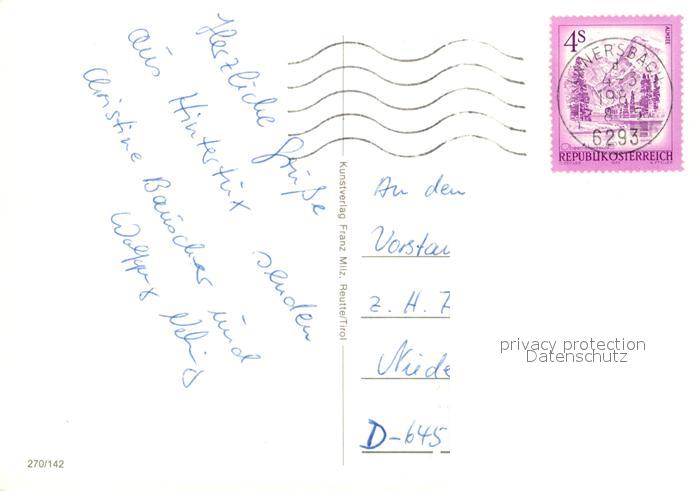 Herzliche Grüße
aus Hintertux senden
Christine Bauscher und
Kunstverlag Franz Milz, Reutte/Tirol
270/142
4S
ALMSEE
6293
REPUBLIK ÖSTERREICH
An den
Vorstan
z. H. F
Niede
D-645
privacy protection
Datenschutz